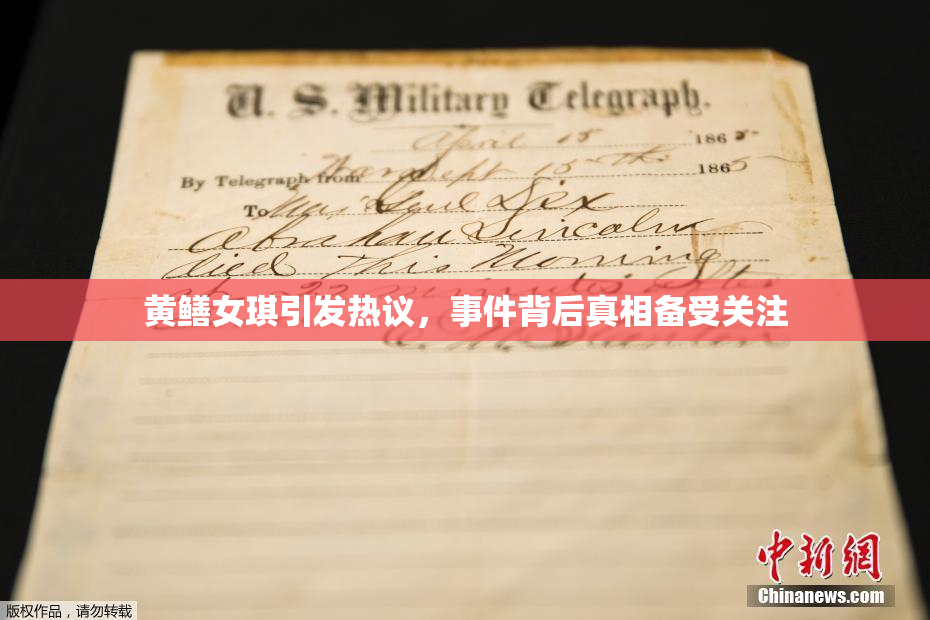 U. S. Military Telegraph.
April 15 1865
By Telegraph from War Dept 15th 1865
To Maj Genl Dix
Abraham Lincoln
died This Morning
at 22 minutes after
黄鳝女琪引发热议，事件背后真相备受关注
E. M. Stanton
中新网
Chinanews.com
版权作品，请勿转载